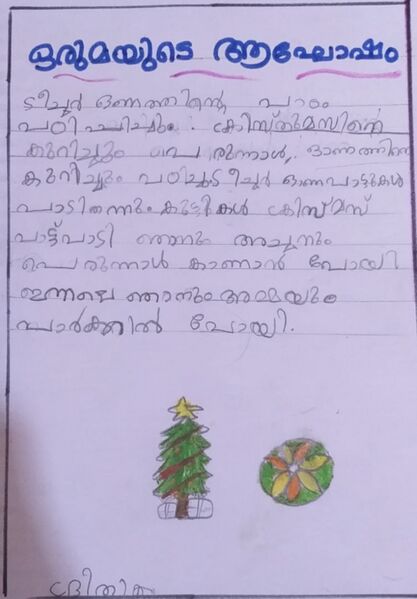 ഒരുമയുടെ ആഘോഷം
ടീച്ചർ ഓണത്തിന്റെ പാഠം
പഠിപ്പിച്ചും. ക്രിസ്തുമസിന്റെ
കുറിച്ചും പെരുന്നാൾ, ഓണത്തിനെ
കുറിച്ചും പഠിച്ചു ടീച്ചർ ഓണപാട്ടുകൾ
പാടിതന്നും കുട്ടികൾ ക്രിസ്മസ്
പാട്ട്പാടി ഞാനും അച്ചനും
പെരുന്നാൾ കാണാൻ പോയി
ഇന്നലെ ഞാനും അമ്മയും
പാർക്കിൽ പോയി.